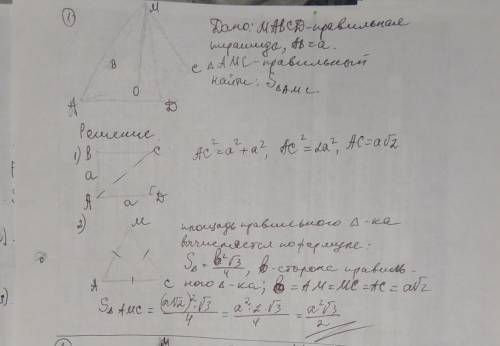 ①
M
Дано: MABCD - правильная
пирамида, AB = a.
△AMC - правильный
найти: S△AMC.
B
C
A
O
D
Решение
1) B C
a
A a D
AC² = a² + a², AC² = 2a², AC = a√2
2) M
A C
площадь правильного △-ка
вычисляется по формуле:
S△ = b²√3/4, b - сторона правиль-
ного △-ка; b = AM = MC = AC = a√2
S△AMC = (a√2)²·√3/4 = a²·2·√3/4 = a²√3/2
M